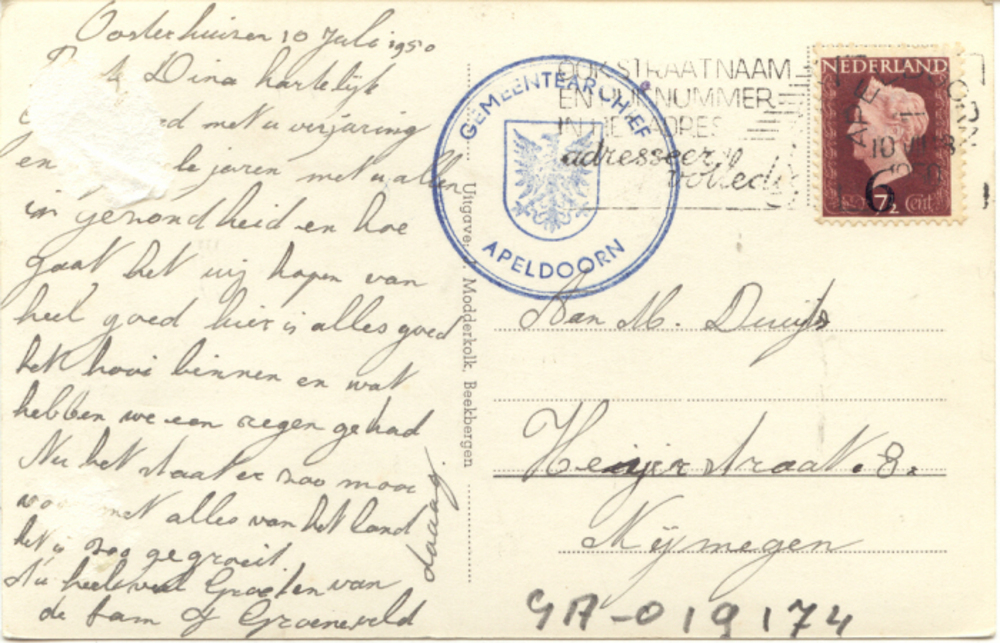 Oosterhuizen 10 Juli 1950
Dina hartelijk
met u verjaring
en jaren met u allen
in gezondheid en hoe
gaat het wij hopen van
heel goed hier is alles goed
het hooi binnen en wat
hebben we een regen gehad
Nu het staat er zoo mooi
met alles van het land
het is zoo gegroeit
Nu heel veel Groeten van
de fam J Groeneveld
Uitgave: Modderkolk, Beekbergen
GEMEENTEARCHIEF
APELDOORN
OOK STRAATNAAM
EN HUISNUMMER
IN HET ADRES
adresseer
volledig
NEDERLAND
6
7½ Cent
Aan M. Duijs
Heijerstraat. 8.
Nijmegen
GA-019174